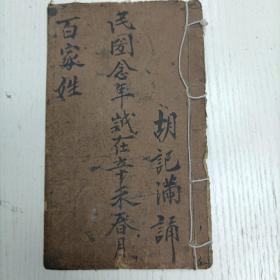 胡記滿誦
民國念年誠在辛未春月
百家姓